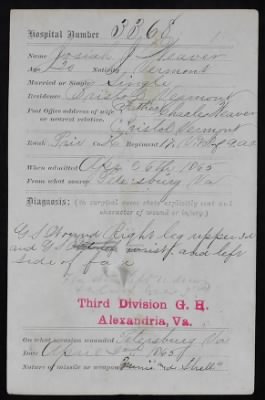 Hospital Number 3368
Name Josiah J Weaver
Age 20 Nativity Vermont
Married or Single Single
Residence Bristol Vermont
Post Office address of wife Father Charles Weaver
or nearest relation.
Bristol Vermont
Rank Priv Co. K Regiment
When admitted Apr 1865
From what source Petersburg Va
Diagnosis: (in surgical cases state explicitly seat and
character of wound or injury.)
G S Wound Right leg upper 3d
and G S wrist and left
side of face
Third Division G. H.
Alexandria, Va.
On what occasion wounded Petersburg Va
Date April 2nd 1865
Nature of missile or weapon Minnie and Shell